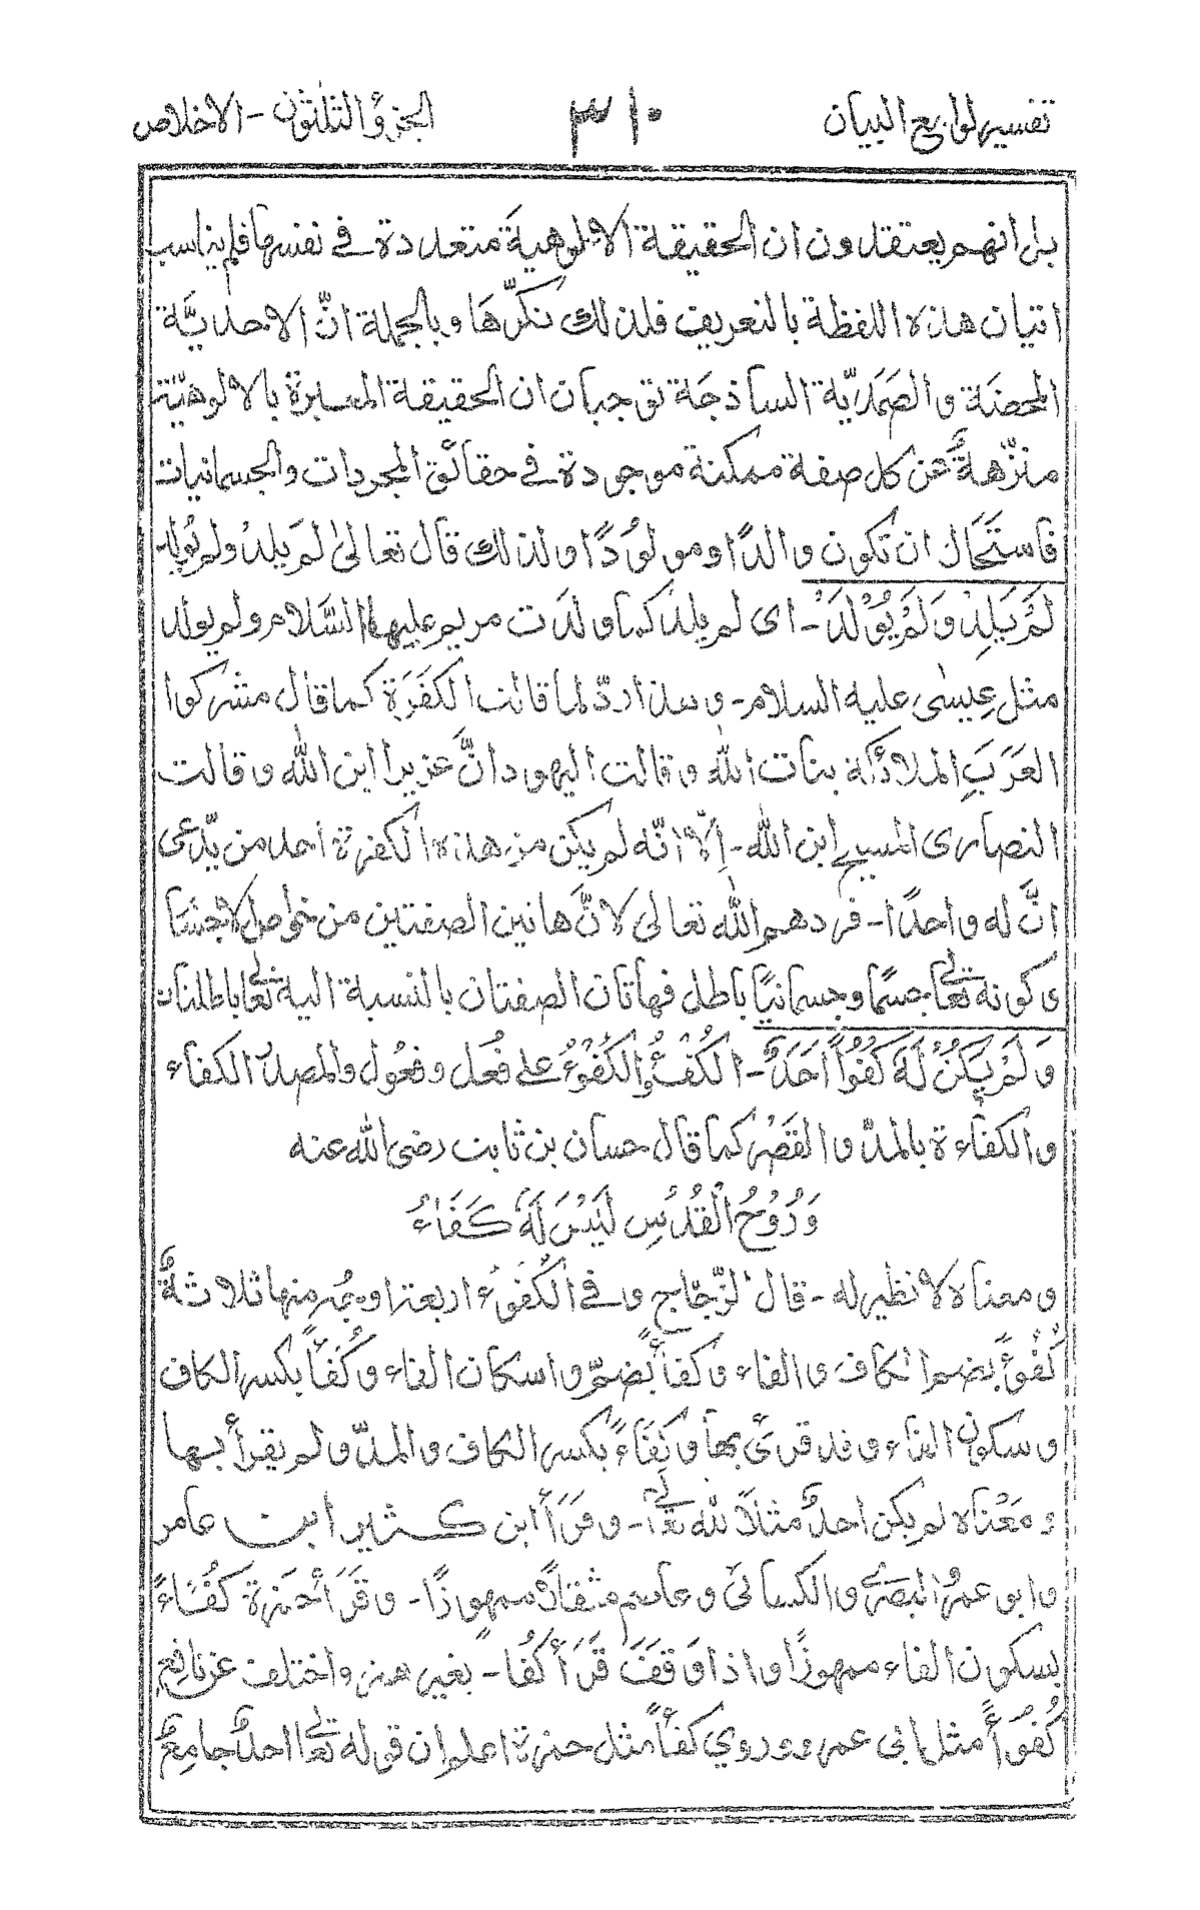 تفسير لوامع البيان ٣١٠ الجزء الثلثون - الاخلاص
بل انهم يعتقدون ان الحقيقة الالوهية متعددة في نفسها فلم يناسب
اتيان هذه اللفظة بالتعريف فلذلك نكّرها وبالجملة انّ الاحديّة
المحضة والصَمَديّة الساذجَة توجبان ان الحقيقة المسبرة بالالوهيّة
منزّهة عن كل صفة ممكنة موجودة في حقائق المجردات والجسمانيات
فاستَحَال ان تكون والدًا ومولوُدًا ولذلك قال تعالىٰ لم يلدْ ولم يُولد
لَمْ يَلِدْ وَلَمْ يُوْلَدْ - اى لم يلد كما ولدَت مريم عليها السَّلام ولم يولد
مثل عِيسٰى عليه السلام - وهذا ردّ لما قالت الكَفَرَة كما قال مشركوا
العَرَبِ الملائكة بنات اللّٰه وقالت اليهود انَّ عزيرا ابن اللّٰه وقالت
النصارى المسيح ابن اللّٰه - اِلّا انّه لم يكن من هذه الكفرة احد من يدّعى
انَّ له واحدًا - فردهم اللّٰه تعالىٰ لانَّ هاتين الصفتين من خواص الاجسَا
وكونه تعالىٰ جسمًا وجسمانيًا باطل فهاتان الصفتان بالنسبة اليه تعالىٰ باطلتان
وَلَمْ يَكُنْ لَهٗ كُفُوًا اَحَدٌ - الكُفُؤُ والكُفُوْءُ على فُعُل وفعُول والمصدر الكفاء
والكفاءة بالمدّ والقَصْر كما قال حسان بن ثابت رضى اللّٰه عنه
وَرُوْحُ الْقُدُسِ لَيْسَ لَهٗ كَفَاءُ
ومعناه لا نظير له - قال الزّجّاج وفي الكُفوُء اربعة اوجُه منها ثلاثةٌ
كُفُؤًا بضم الكاف والفاء وكفأً بضمّ واسكان الفاء وكُفَأً بكسر الكاف
وسكون الفاء وقد قرئ بها وكِفَاءً بكسر الكاف والمدّ ولم يقرأ بها
ومَعْناه لم يكن احدٌ مثلًا للّٰه تعالىٰ - وقَرَأ ابن كثير ابن عامر
وابو عمرٍو البَصرى والكسائى وعاصم مثقلًا مهموزًا - وقَرَأ حَمزة كُفْاءً
بسكون الفاء مهموزًا واذا وَقَفَ قَرَأ كُفا - بغير همز واختلف عن نافعٍ
كُفُوًأ مثل ابى عمرو وروي كفأً مثل حمزة اعلم ان قوله تعالىٰ احدٌ جامعٌ